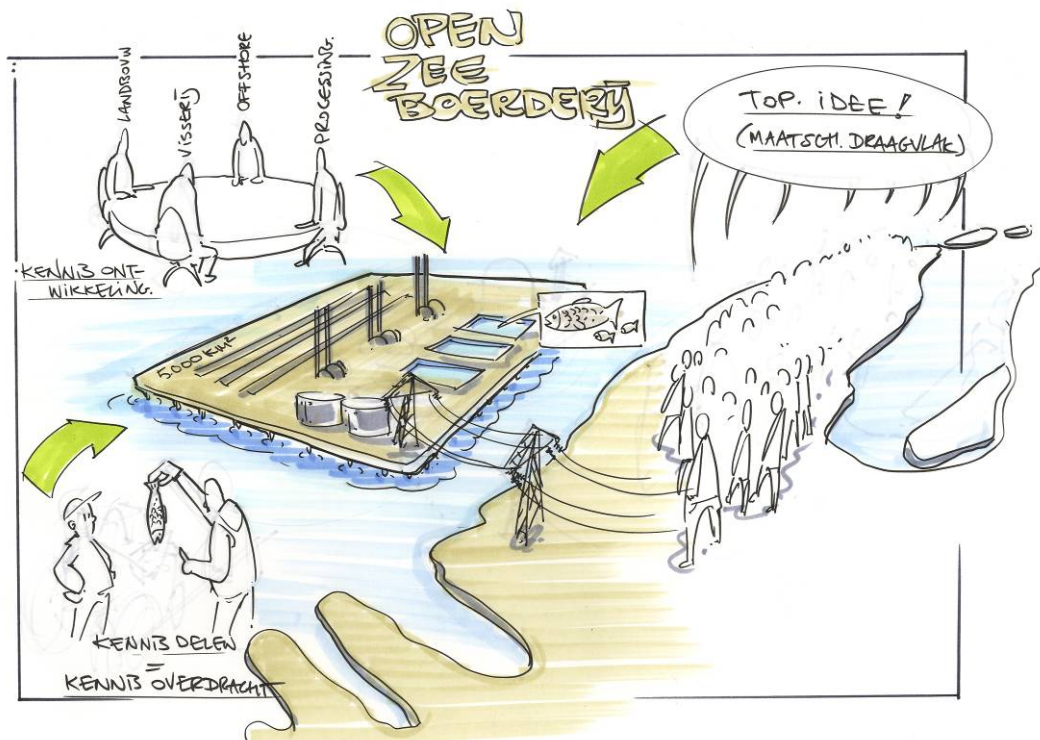 OPEN
ZEE
BOERDERIJ
LANDBOUW
VISSERIJ
OFFSHORE
PROCESSING.
TOP. IDEE!
(MAATSCH. DRAAGVLAK)
KENNIS ONT-
WIKKELING.
5.000 KM²
KENNIS DELEN
=
KENNIS OVERDRACHT